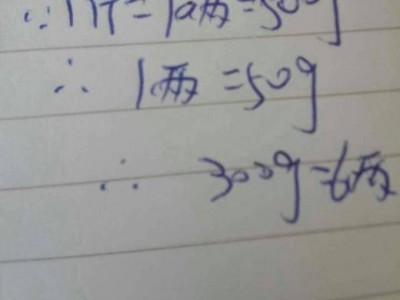 ∵1斤=10两=500g
∴ 1两=50g
∴ 300g=6两